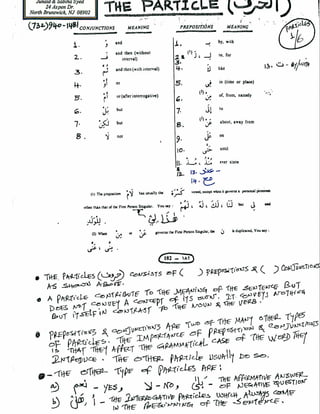 Junaid & Sabiha Syed
24 Aspen Dr.
North Brunswick, NJ 08902
THE PARTICLE (الحرف)
(732) 940-1481
PARTICLES
1/6
CONJUNCTIONS MEANING PREPOSITIONS MEANING
1. وَ and 1. بِ by, with
2. فَ and then (without interval) to, for
3. ثُمَّ and then (with interval)
4. أَوْ or 4. like
5. أَمْ or (after interrogative) 5. فِي in (time or place)
6. بَلْ but 6. مِنْ of, from, namely
7. لٰكِنْ but 7. إِلَى to
8. لَا nor 8. عَنْ about, away from
9. عَلَى on
10. حَتَّى until
11. مُنْذُ ever since
12. عند
14. مع
(1) The preposition لِ has usually the vowel, except when it governs a personal pronoun
other than that of the First Person Singular. You say:
(2) When مِنْ or عَنْ governs the First Person Singular, the ن is duplicated. You say:
● THE PARTICLES (حروف) CONSISTS OF ( ) PREPOSITIONS & ( ) CONJUNCTIONS
AS SHOWN ABOVE.
● A PARTICLE CONTRIBUTE TO THE MEANING OF THE SENTENCE BUT
DOES NOT CONVEY A CONCEPT OF ITS OWN. IT CONVEYS NOTHING
BUT ITSELF IN CONTRAST TO THE NOUN & THE VERB.
● PREPOSITIONS & CONJUNCTIONS ARE TWO OF THE MANY OTHER TYPES
OF PARTICLES. THE IMPORTANCE OF PREPOSITION & CONJUNCTIONS
IS THAT THEY AFFECT THE GRAMMATICAL CASE OF THE WORD THEY
INTRODUCE. THE OTHER PARTICLE USUALLY DO SO.
● THE OTHER TYPE OF PARTICLES ARE:
a) نعم - YES, لا - NO, THE AFFIRMATIVE ANSWER
OF NEGATIVE QUESTION
b) هل , أ - THE INTERROGATIVE PARTICLES WHICH ALWAYS COME
IN THE BEGINNING OF THE SENTENCE.